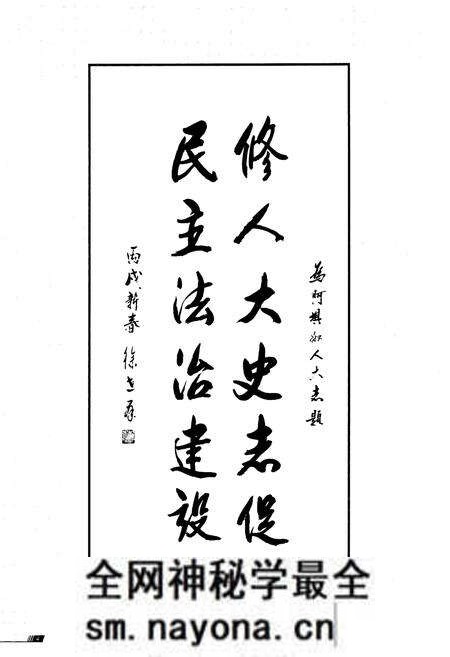 為阿 人大志題
修人大史志促
民主法治建设
丙戌新春 徐
全网神秘学最全
sm.nayona.cn